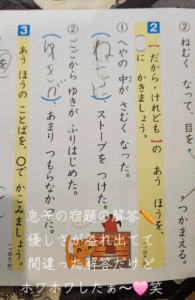 ② ねむく なって、目を
つかまえる。
2 【だから・けれども】の あう ほうを、
( )に かきましょう。
① へやの 中が さむく なった。
ストーブを つけた。
② ここから ゆきが ふりはじめた。
あまり つもらなかった。
3 あう ほうの ことばを、○で かこみましょう。
息子の宿題の解答
優しさが溢れ出てて
間違った解答だけど
ホワホワしたぁ〜笑